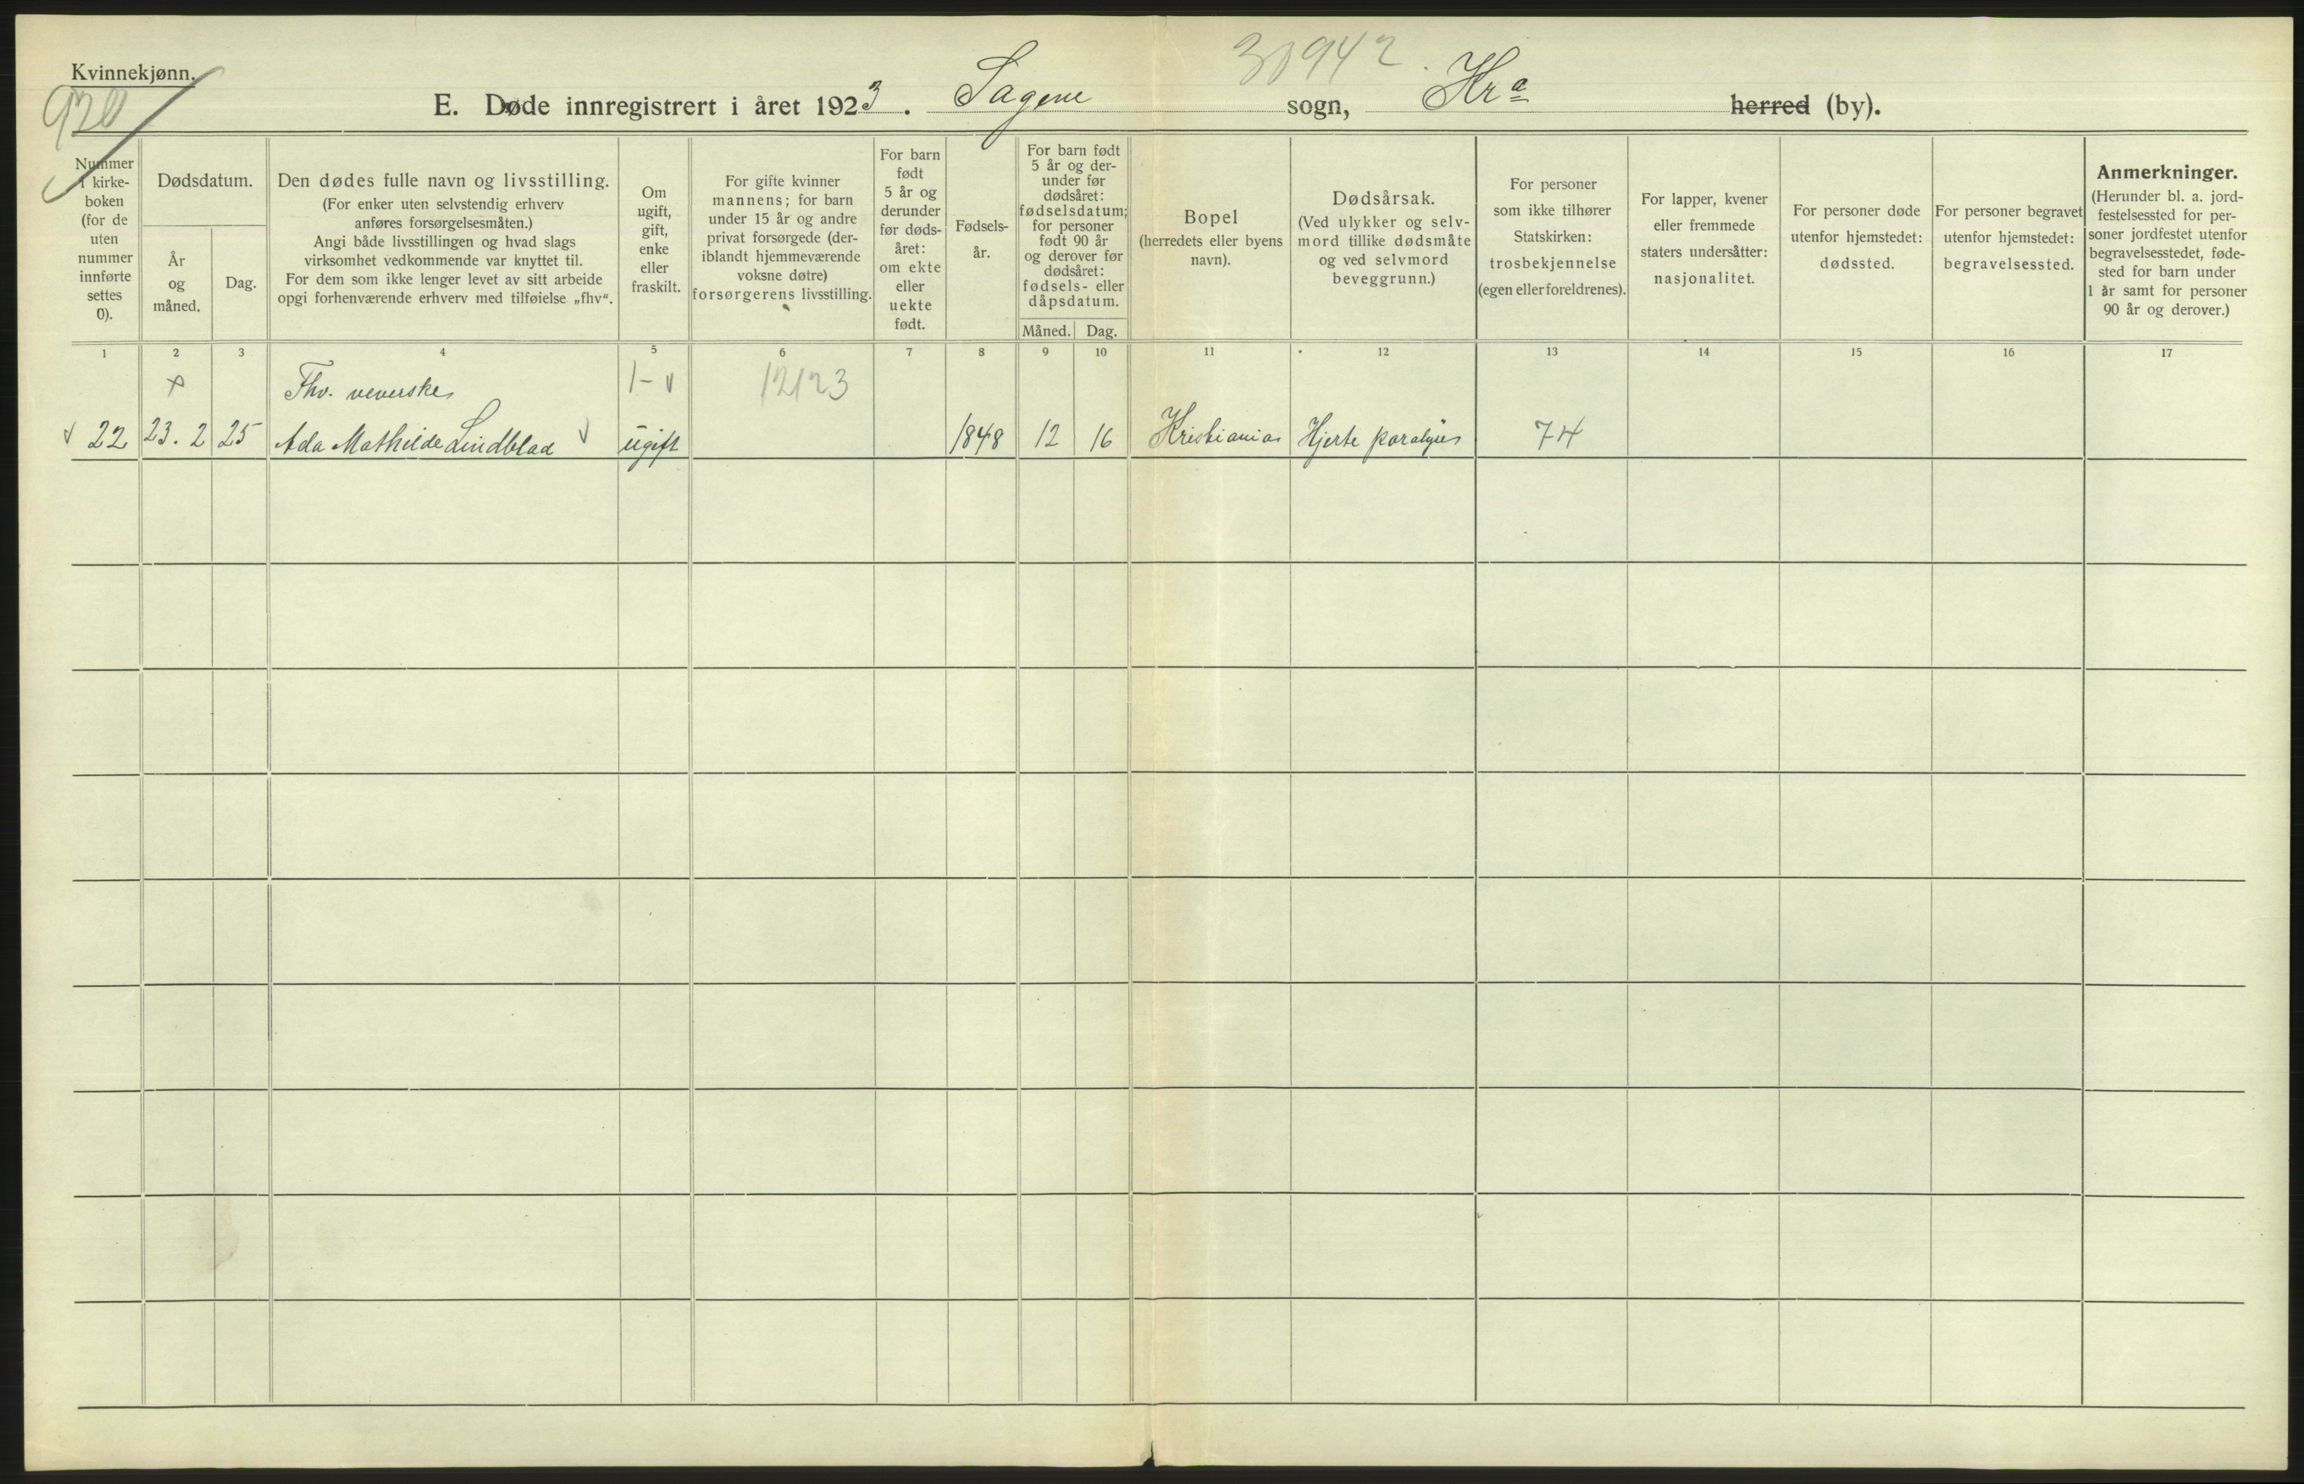 Kvinnekjønn.
920
30942
E. Døde innregistrert i året 1923. Sagene sogn, Kra herred (by).
Nummer i kirke-
boken
(for de
uten
nummer
innførte
settes
0).
Dødsdatum.
År
og
måned.
Dag.
Den dødes fulle navn og livsstilling.
(For enker uten selvstendig erhverv
anføres forsørgelsesmåten.)
Angi både livsstillingen og hvad slags
virksomhet vedkommende var knyttet til.
For dem som ikke lenger levet av sitt arbeide
opgi forhenværende erhverv med tilføielse „fhv“.
Om
ugift,
gift,
enke
eller
fraskilt.
For gifte kvinner
mannens; for barn
under 15 år og andre
privat forsørgede (der-
iblandt hjemmeværende
voksne døtre)
forsørgerens livsstilling.
For barn
født
5 år og
derunder
før døds-
året:
om ekte
eller
uekte
født.
Fødsels-
år.
For barn født
5 år og der-
under før
dødsåret:
fødselsdatum;
for personer
født 90 år
og derover før
dødsåret:
fødsels- eller
dåpsdatum.
Måned.
Dag.
Bopel
(herredets eller byens
navn).
Dødsårsak.
(Ved ulykker og selv-
mord tillike dødsmåte
og ved selvmord
beveggrunn.)
For personer
som ikke tilhører
Statskirken:
trosbekjennelse
(egen eller foreldrenes).
For lapper, kvener
eller fremmede
staters undersåtter:
nasjonalitet.
For personer døde
utenfor hjemstedet:
dødssted.
For personer begravet
utenfor hjemstedet:
begravelsessted.
Anmerkninger.
(Herunder bl. a. jord-
festelsessted for per-
soner jordfestet utenfor
begravelsesstedet, føde-
sted for barn under
1 år samt for personer
90 år og derover.)
1 2 3 4 5 6 7 8 9 10 11 12 13 14 15 16 17
Fhv. veverske 1- 12123
22 23. 2 25 Ada Mathilde Lindblad ugift 1848 12 16 Kristiania Hjerte paralyse 74